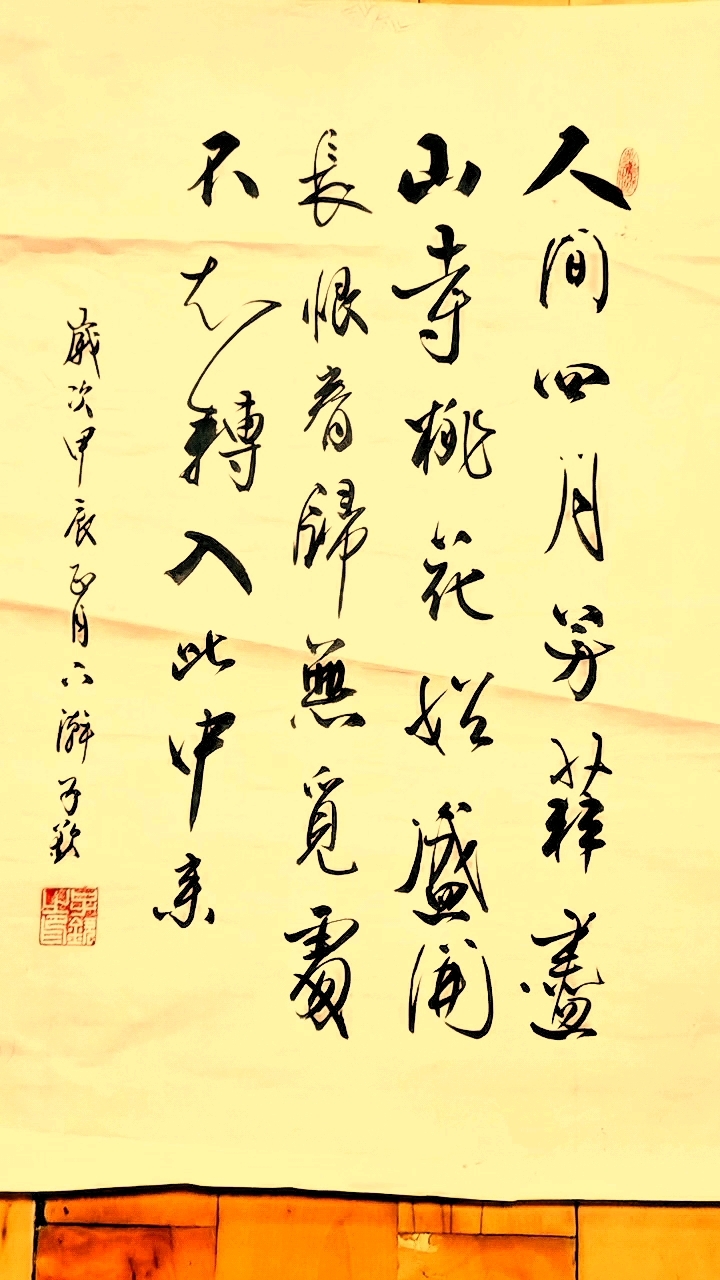 人間四月芳菲盡
山寺桃花始盛開
長恨春歸無覓處
不知轉入此中來
歲次甲辰正月下澣子欽